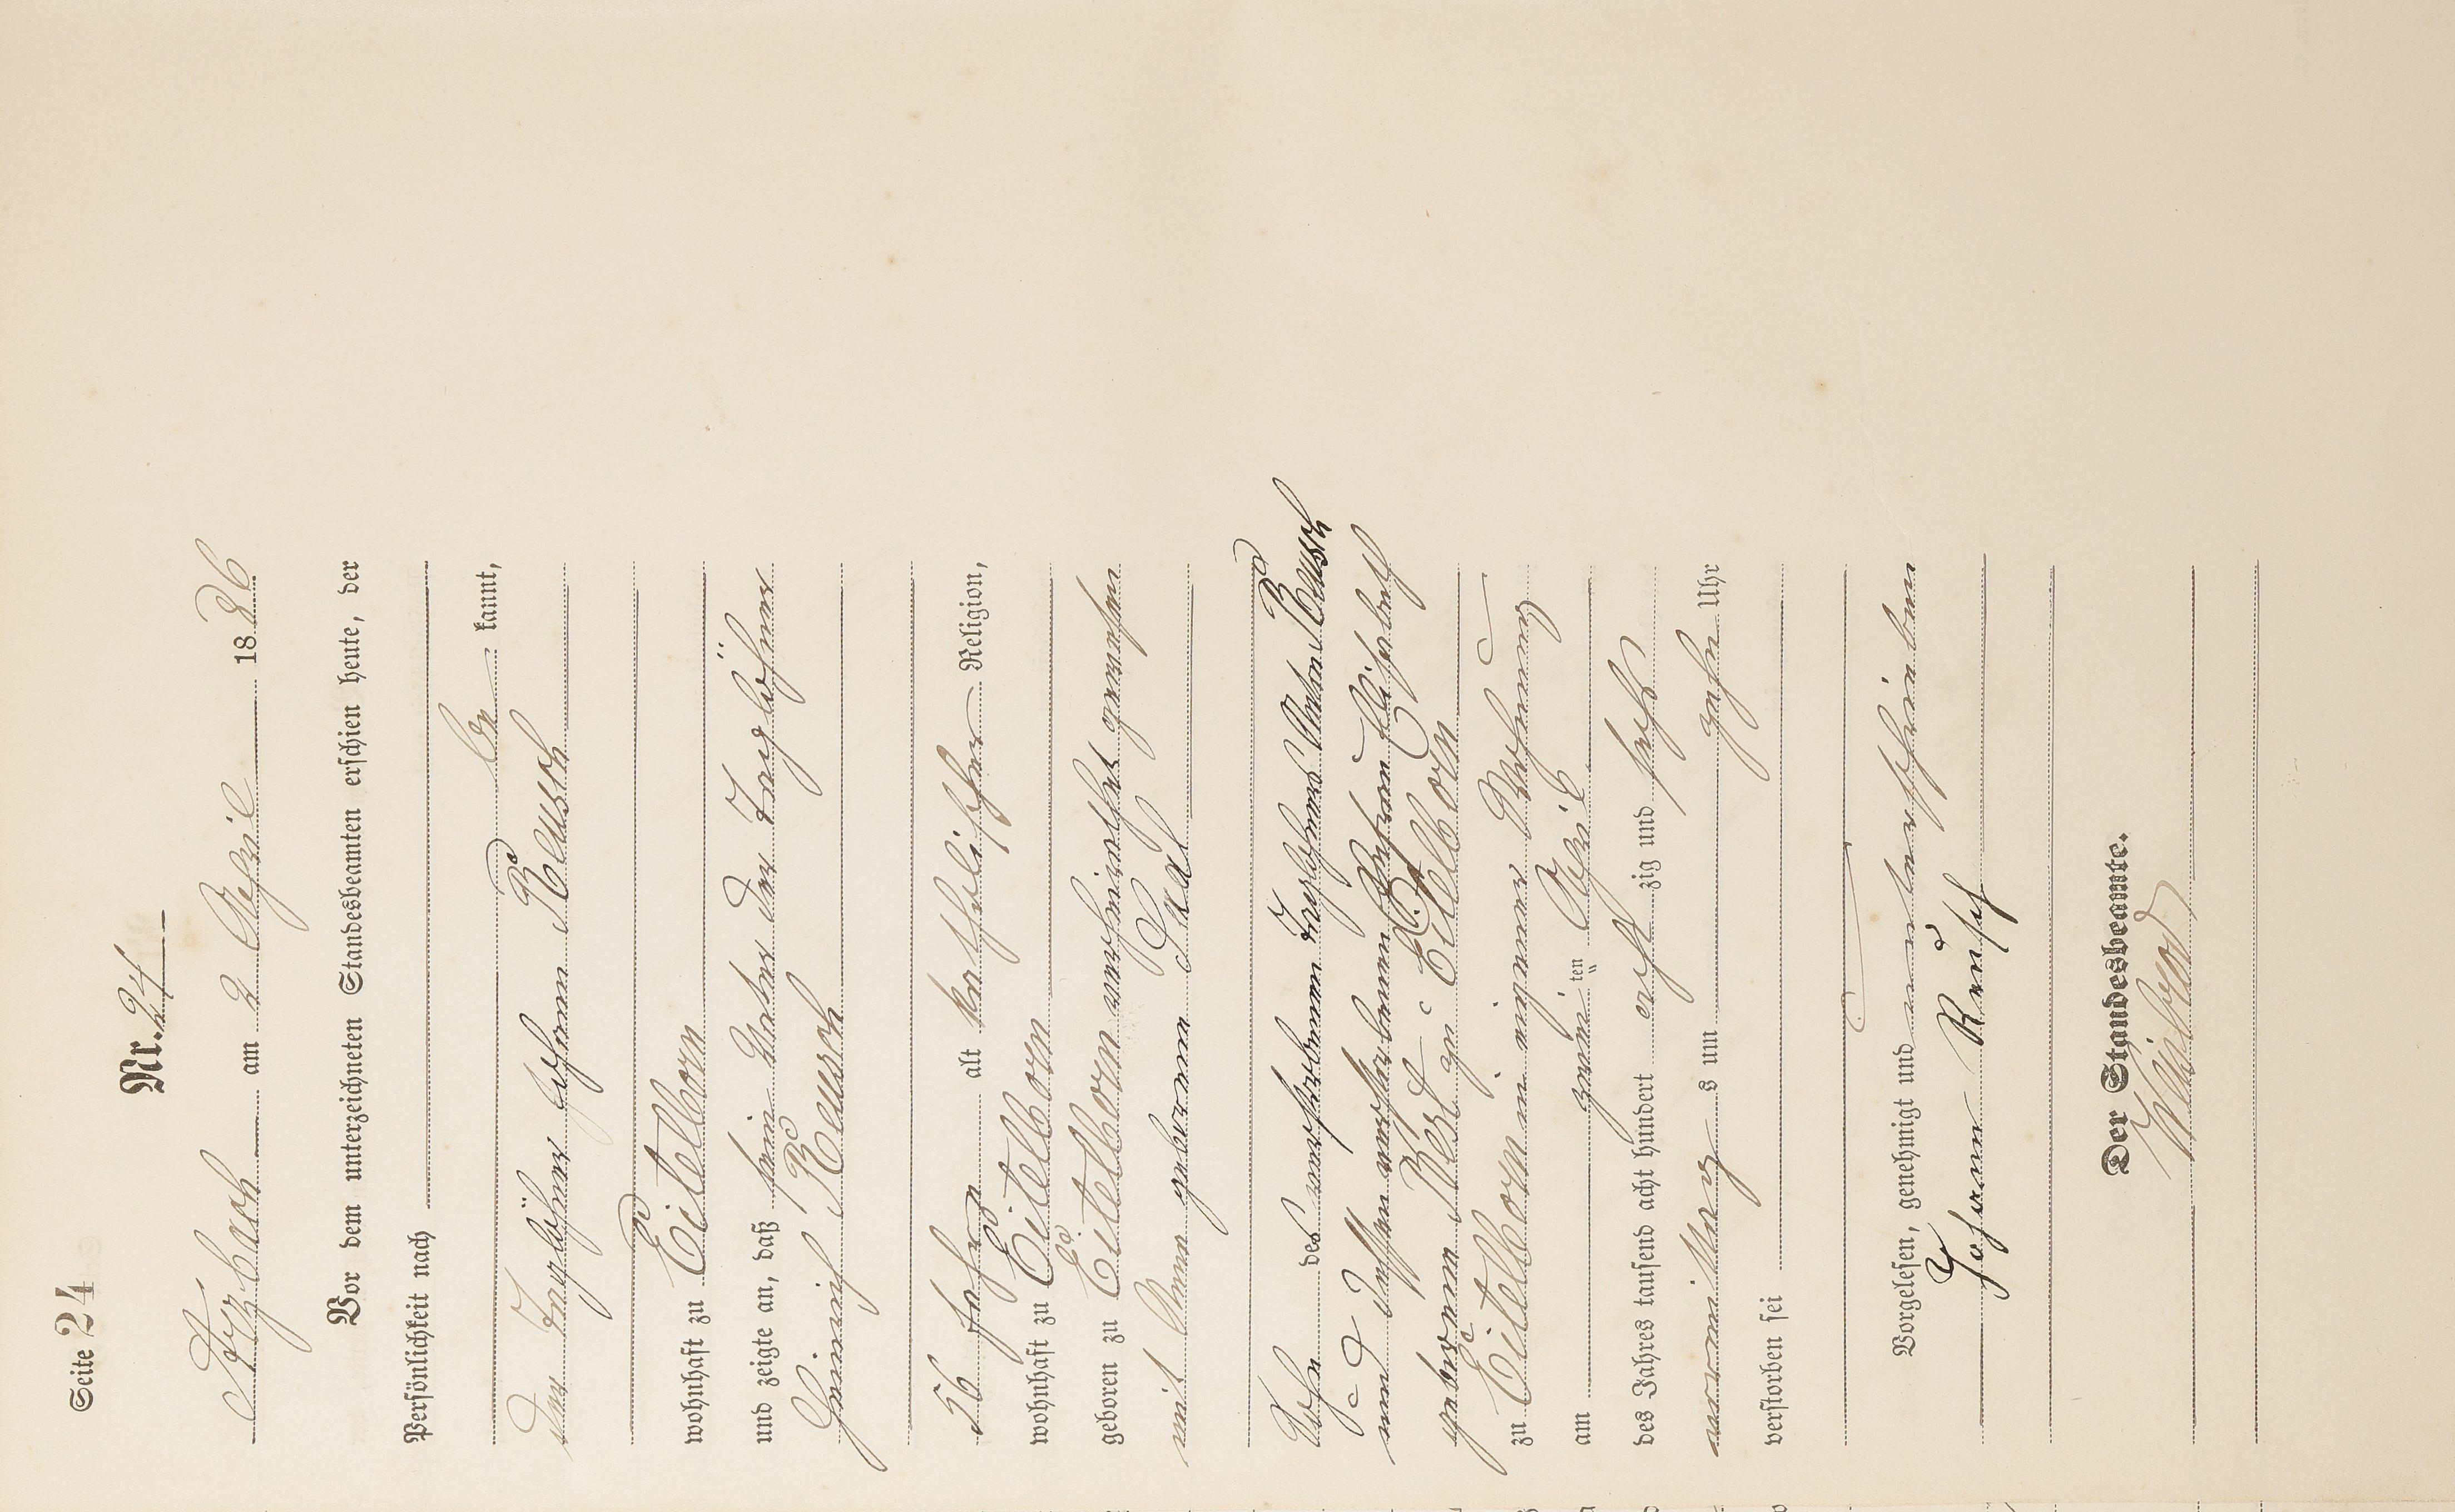 Seite 24
Nr. 24
Arzbach am 2 April 1886
Vor dem unterzeichneten Standesbeamten erschien heute, der
Persönlichkeit nach
be kannt,
der Taglöhner Johann Reusch
wohnhaft zu Eitelborn
und zeigte an, daß sein Vater der Taglöhner
Heinrich Reusch
56 Jahre alt katholischer Religion,
wohnhaft zu Eitelborn
geboren zu Eitelborn verheirathet gewesen
mit Anna geborene
Sohn des verstorbenen Taglöhners Anton Reusch
und dessen verstorbenen Ehefrau Elisabeth
geborene zu Eitelborn
zu Eitelborn in eigener Wohnung
am zweiten April
des Jahres tausend acht hundert acht zig und sechs
vormittags um zehn Uhr
verstorben sei
Vorgelesen, genehmigt und unterschrieben
Johann Reusch
Der Standesbeamte.